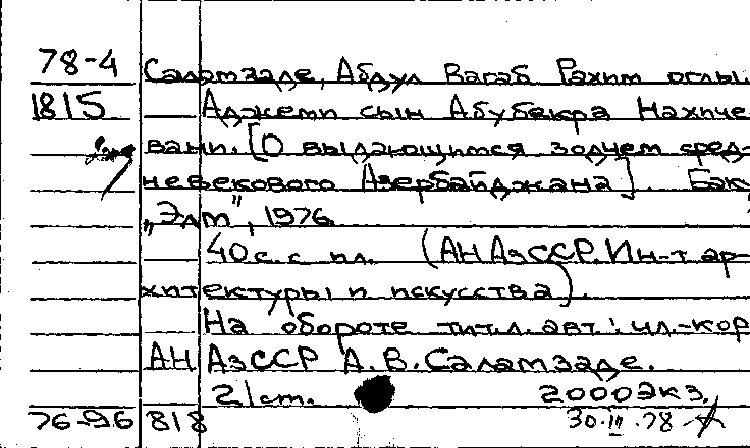 78-4 Саламзаде, Абдул Вагаб Рахим оглы
1815 Аджеми сын Абубекра Нахиче
вани. [О выдающимся зодчем сред-
невекового Азербайджана]. Бак
„Элм", 1976
40 с. с ил. (АН АзССР. Ин-т ар-
хитектуры и искусства).
На обороте тит.л. авт: чл.-кор
АН АзССР А.В. Саламзаде.
21 cm. 2000 экз.
76-96 818 30.III.78